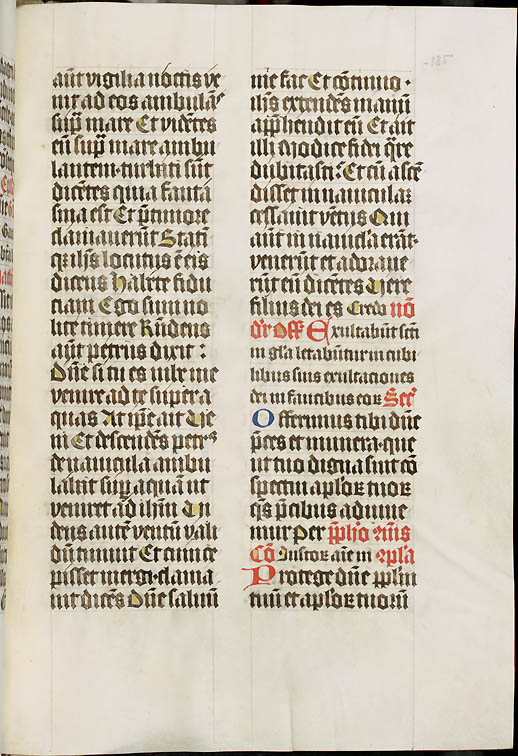 aūt vigilia noctis ve
nit ad eos ambulās
sup̄ mare Et vidētes
eū sup̄ mare ambu
lantem· turbati sūt
dicētes quia fanta
sma est Et p̄ timore
clamaverūt Stati
q̄ ih̄s locutus ē eis
dicens Habete fidu
ciam Ego sum no
lite timere Rn̄dens
aūt petrus dixit :
Dn̄e si tu es iube me
venire ad te super a
quas At ip̄e ait Ve
ni Et descendēs petrꝰ
de navicula ambu
labat sup̄ aquā ut
veniret ad ih̄m Vi
dens autē ventū vali
dū timuit Et cū ince
pisset mergi· clama
vit dicēs Dn̄e salvū
me fac Et cōtinuo ·
ih̄s extendēs manū
app̄hendit eū Et ait
illi Modice fidei q̄re
dubitasti : Et cū ascē
disset in navicular
cessavit vētus Qui
aūt in navicla erāt·
venerūt et adorave
rūt eū dicētes Vere
filius dei es Credo nō
dr̄ Off Exultabūt scti
in gl̄a letabūntur in cubi
libus suis exultaciones
dei in faucibus eoꝝ Secr̄
Offerimus tibi dn̄e
p̄ces et munera· que
ut tuo digna sint cō
spectui ap̄loꝝ tuoꝝ
q̄s p̄cibus adiuve
mur Per
Cō Iustoꝝ aīe in
Protege dn̄e pp̄lm
tuū et ap̄loꝝ tuorū
185